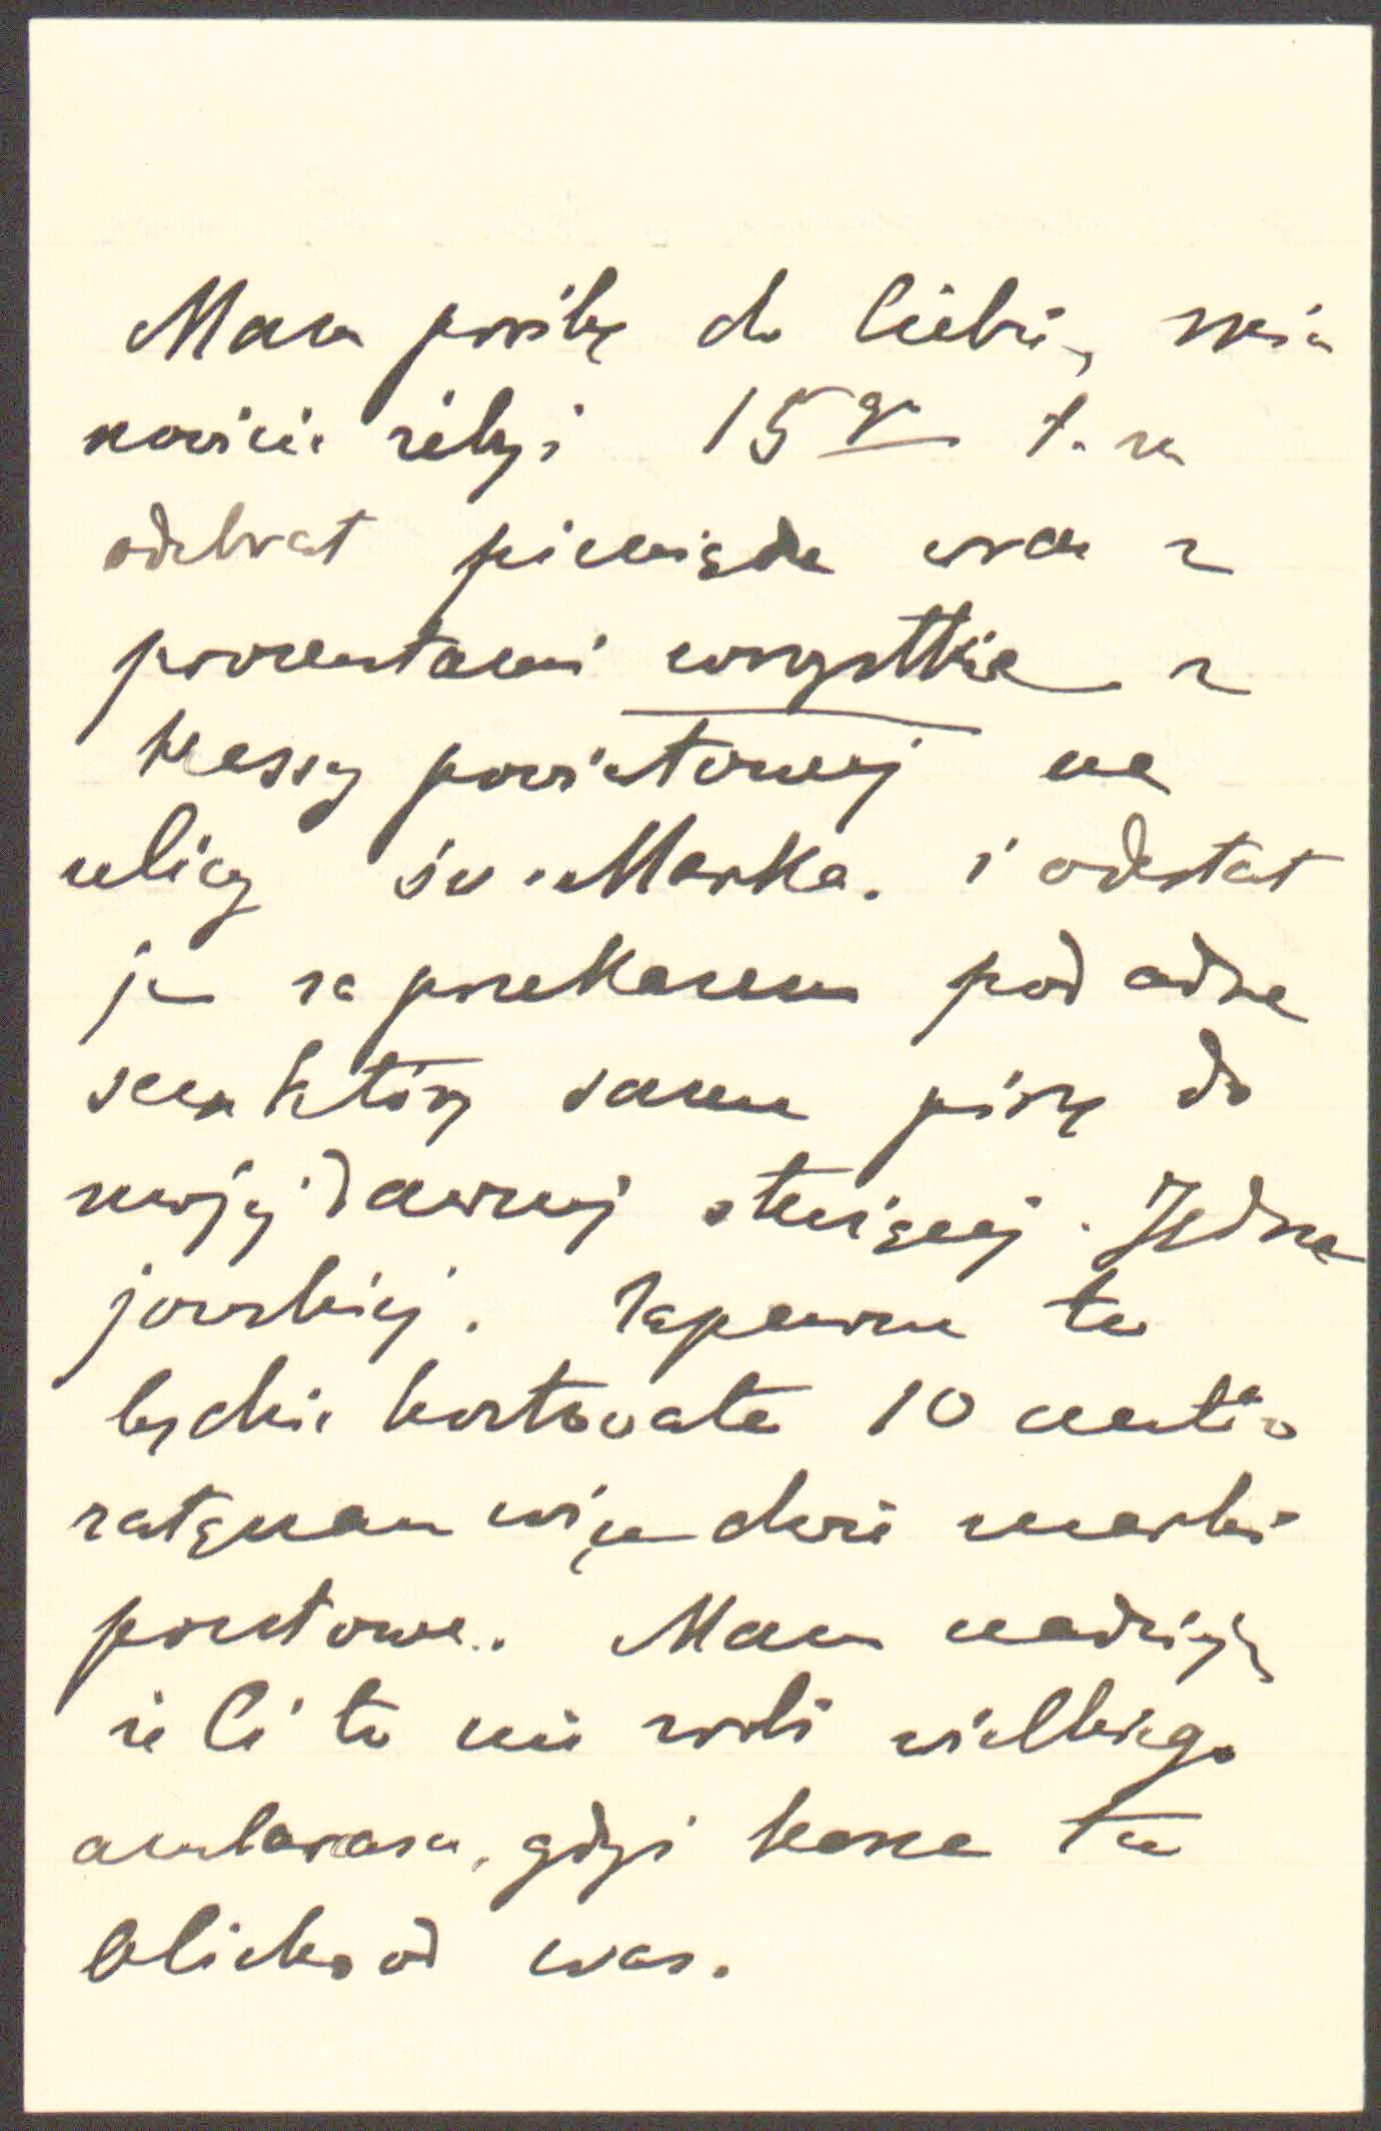 Mam prośbę do Ciebie, mia
nowicie żebyś 15go t. m
odebrał pieniądze wraz z
procentami wszystkie z
kassy powiatowej na
ulicy św. Marka. i odesłał
je za przekazem pod adre
sem który sama piszę do
mojej dawnej służącej. Jędrze
jowskiej. Zapewne to
będzie kosztowało 10 centów
załączam więc dwie marki
pocztowe. Mam nadzieję
że Ci to nie zrobi wielkiego
ambarasu, gdyż kasa ta
blisko od was.